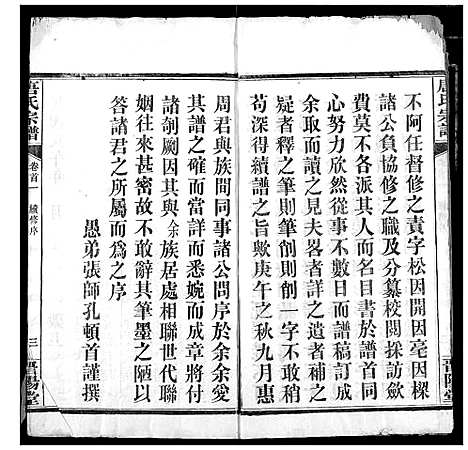 唐氏宗譜
不阿任督修之責字松因開因亳因樑
諸公負協修之職及分纂校閱採訪歛
費莫不各派其人而名定焉由是眾志
同心懽欣然從事不數日而譜稿訂成
余取而讀之見夫畧者詳之逸者補之
疑者釋之筆則筆削則削一字不敢有
苟深得續譜之旨歟庚午之秋九月惠
周君與族間同事諸公問序於余余愛
其譜之確而當詳而悉婉而成章將付
諸剞劂因其與余族居處相聯世代聯
姻往來甚密故不敢辭其筆墨之陋以
答諸君之所屬而為之序
愚弟張師孔頓首謹撰
唐氏宗譜
卷首一
續修序
三
晋陽堂
晋陽堂